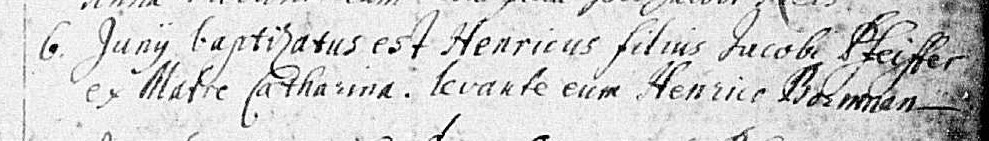 6. Juny baptizatus est Henricus filius Jacobi Pfeiffer
ex Matre Catharina. levante eum Henrico Bormnan